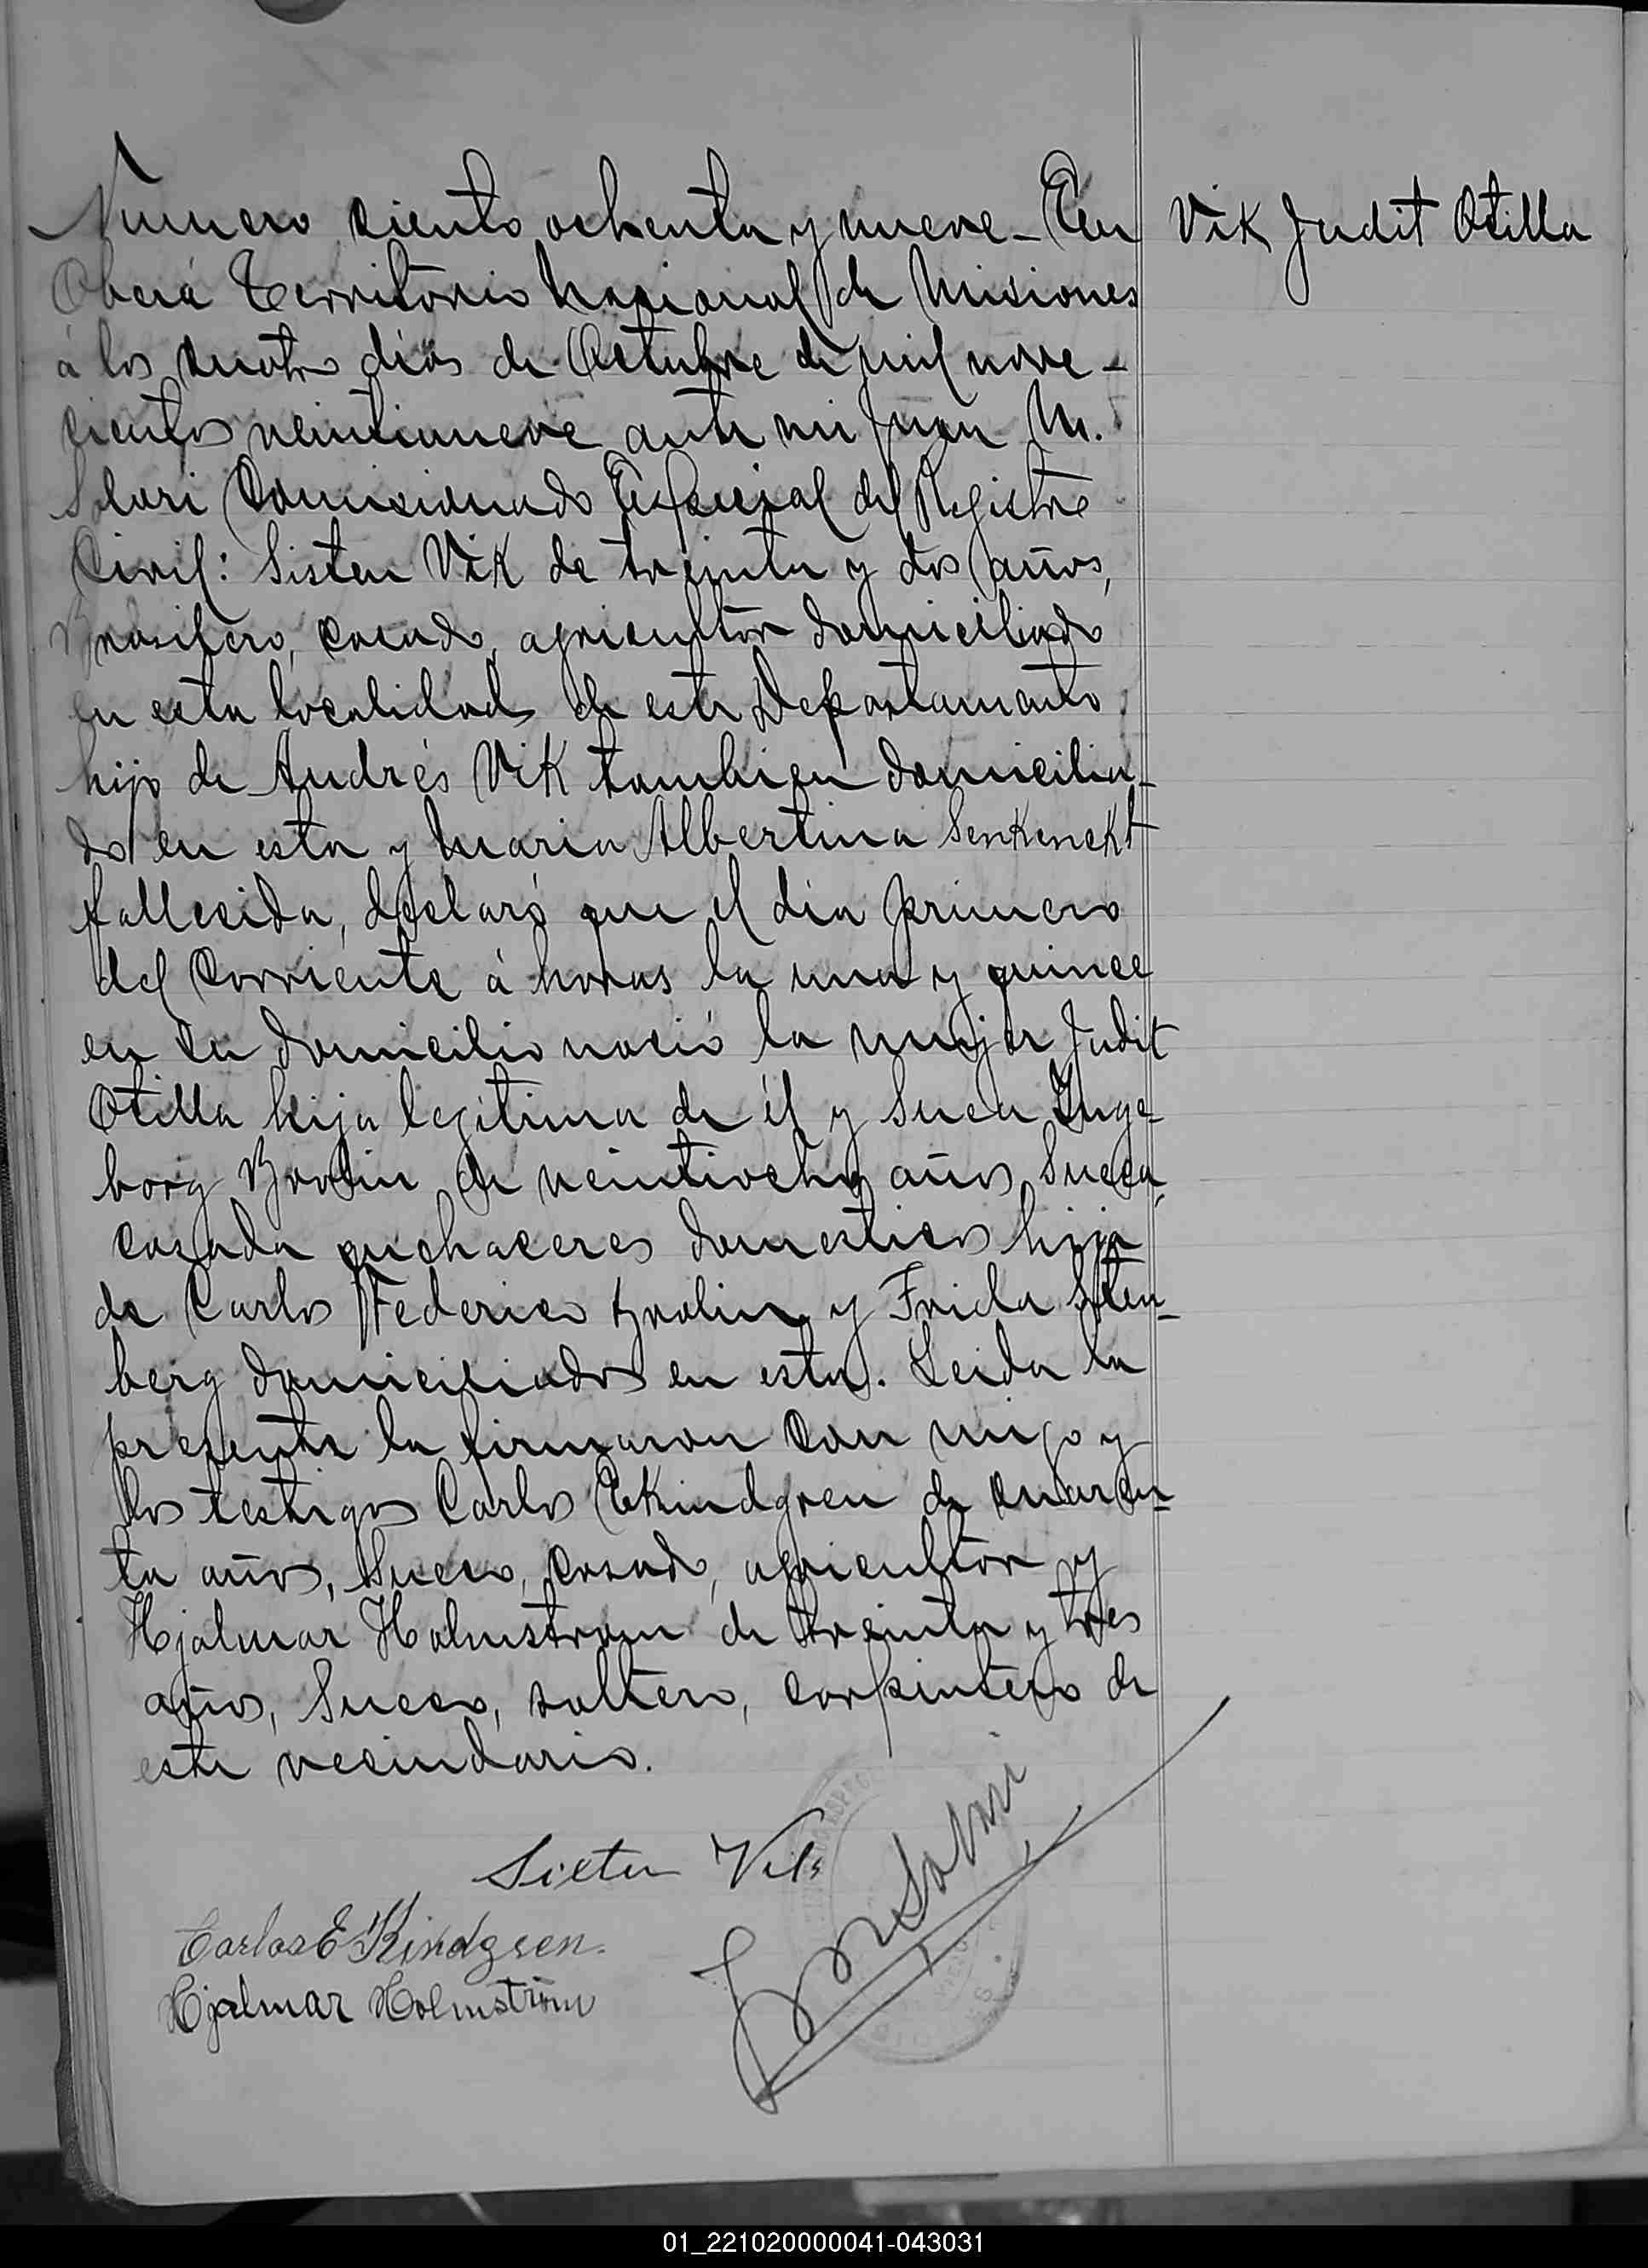 Numero ciento ochenta y nueve - En
Vik Judit Otilla
Oberá Territorio Nacional de Misiones
á los cuatro dias de Octubre de mil nove-
cientos veintinueve ante mi Juan M.
Solari Comisionado Especial del Registro
Civil: Sisten Vik de treinta y dos años,
Brasilero, casado, agricultor domiciliado
en esta localidad de este Departamento
hijo de Andrés Vik tambien domicilia-
do en esta y Maria Albertina Senknekt
fallecida, declaró que el dia primero
del corriente á horas la una y quince
en su domicilio nació la mujer Judit
Otilla hija legitima de él y Inge-
borg Brolin de veintiocho años, Sueca,
casada quehaceres domesticos hija
de Carlos Federico Brolin y Frida Sten-
berg domiciliados en esta. Leida la
presente la firmaron con migo y
los testigos Carlos E Kindgren de cuaren-
ta años, Sueco, casado, agricultor y
Hjalmar Holmstrom de treinta y tres
años, Sueco, soltero, carpintero de
este vecindario.
Sixten Vik
Carlos E Kindgren.
Hjalmar Holmström
JMSolari
01_221020000041-043031